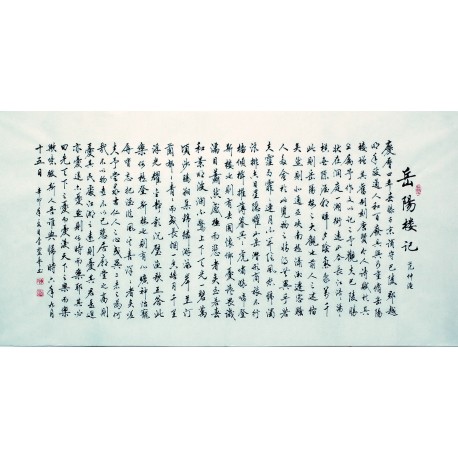 岳陽楼记 范仲淹
慶厯四年春滕子京谪守巴陵郡越
明年政通人和百廢具興乃重修岳陽
楼增其舊制刻唐賢今人诗赋於其
上属予作文以记之予觀夫巴陵勝
状在洞庭一湖衔遠山吞长江浩浩湯
湯横無際涯朝晖夕陰氣象萬千
此則岳陽楼之大觀也前人之述備
矣然則北通巫峡南極潇湘遷客騷
人多會於此览物之情得無异乎若
夫霪雨霏霏连月不開阴風怒號濁
浪排空日星隐耀山岳潜形商旅不行
樯倾楫摧薄暮冥冥虎啸猿啼登
斯楼也則有去國懷鄉憂讒畏譏
满目蕭然感極而悲者矣至若春
和景明波澜不驚上下天光一碧萬
顷沙鷗翔集錦鳞游泳岸芷汀
蘭郁郁青青而或长烟一空皓月千里
浮光耀金静影沉璧漁歌互答此
樂何極登斯楼也則有心曠神怡寵
辱偕忘把酒臨風其喜洋洋者矣嗟
夫予嘗求古仁人之心或異二者之為何
哉不以物喜不以己悲居廟堂之高則
憂其民處江湖之遠則憂其君是進
亦憂退亦憂然則何時而樂耶其必
曰先天下之憂而憂後天下之樂而樂
欤噫微斯人吾谁與歸时六年九月
十五日 辛卯年